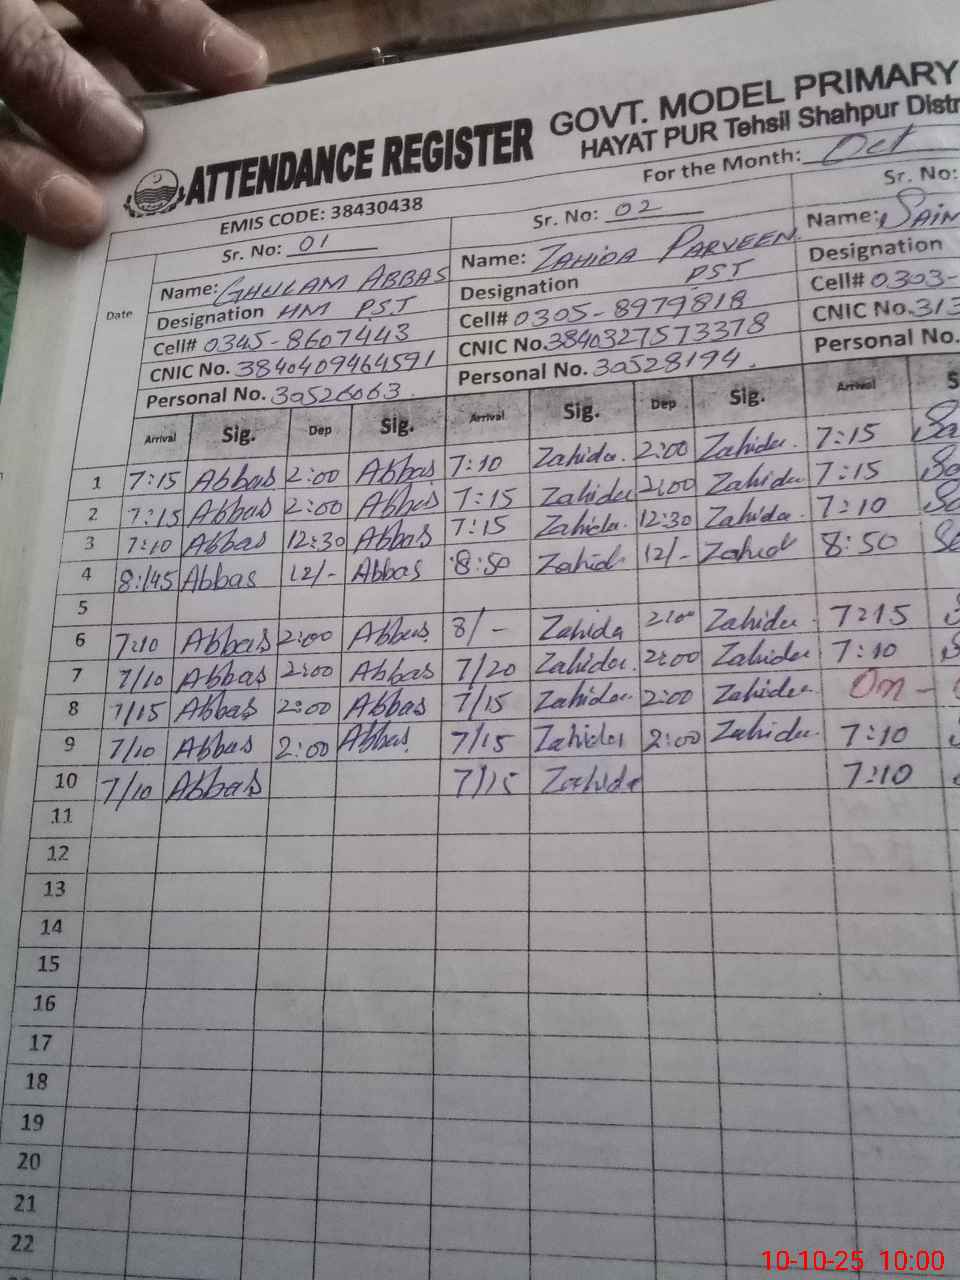 ATTENDANCE REGISTER GOVT. MODEL PRIMARY
HAYAT PUR Tehsil Shahpur Distr
EMIS CODE: 38430438 For the Month: Oct
Sr. No: 01 Sr. No: 02 Sr. No:
Date Name: GHULAM ABBAS Name: ZAHIDA PARVEEN Name: SAIN
Designation HM PST Designation PST Designation
Cell# 0345-8607443 Cell# 0305-8979818 Cell# 0303-
CNIC No. 3840409464591 CNIC No. 3840327573378 CNIC No. 313
Personal No. 30526063. Personal No. 30528194. Personal No.
Arrival Sig. Dep Sig. Arrival Sig. Dep Sig. Arrival S
1 7:15 Abbas 2:00 Abbas 7:10 Zahida. 2:00 Zahida. 7:15 Sa
2 7:15 Abbas 2:00 Abbas 7:15 Zahida 2:00 Zahida. 7:15 Sa
3 7:10 Abbas 12:30 Abbas 7:15 Zahida. 12:30 Zahida. 7:10 Sa
4 8:45 Abbas 12/- Abbas 8:50 Zahid 12/- Zahid 8:50 Sa
5
6 7:10 Abbas 2:00 Abbas 8/- Zahida 2:00 Zahida. 7:15 S
7 7/10 Abbas 2:00 Abbas 7/20 Zahida. 2:00 Zahida 7:10 S
8 7/15 Abbas 2:00 Abbas 7/15 Zahida 2:00 Zahida. On -
9 7/10 Abbas 2:00 Abbas 7/15 Zahida 2:00 Zahida. 7:10
10 7/10 Abbas 7/15 Zahida 7:10
11
12
13
14
15
16
17
18
19
20
21
22
10-10-25 10:00